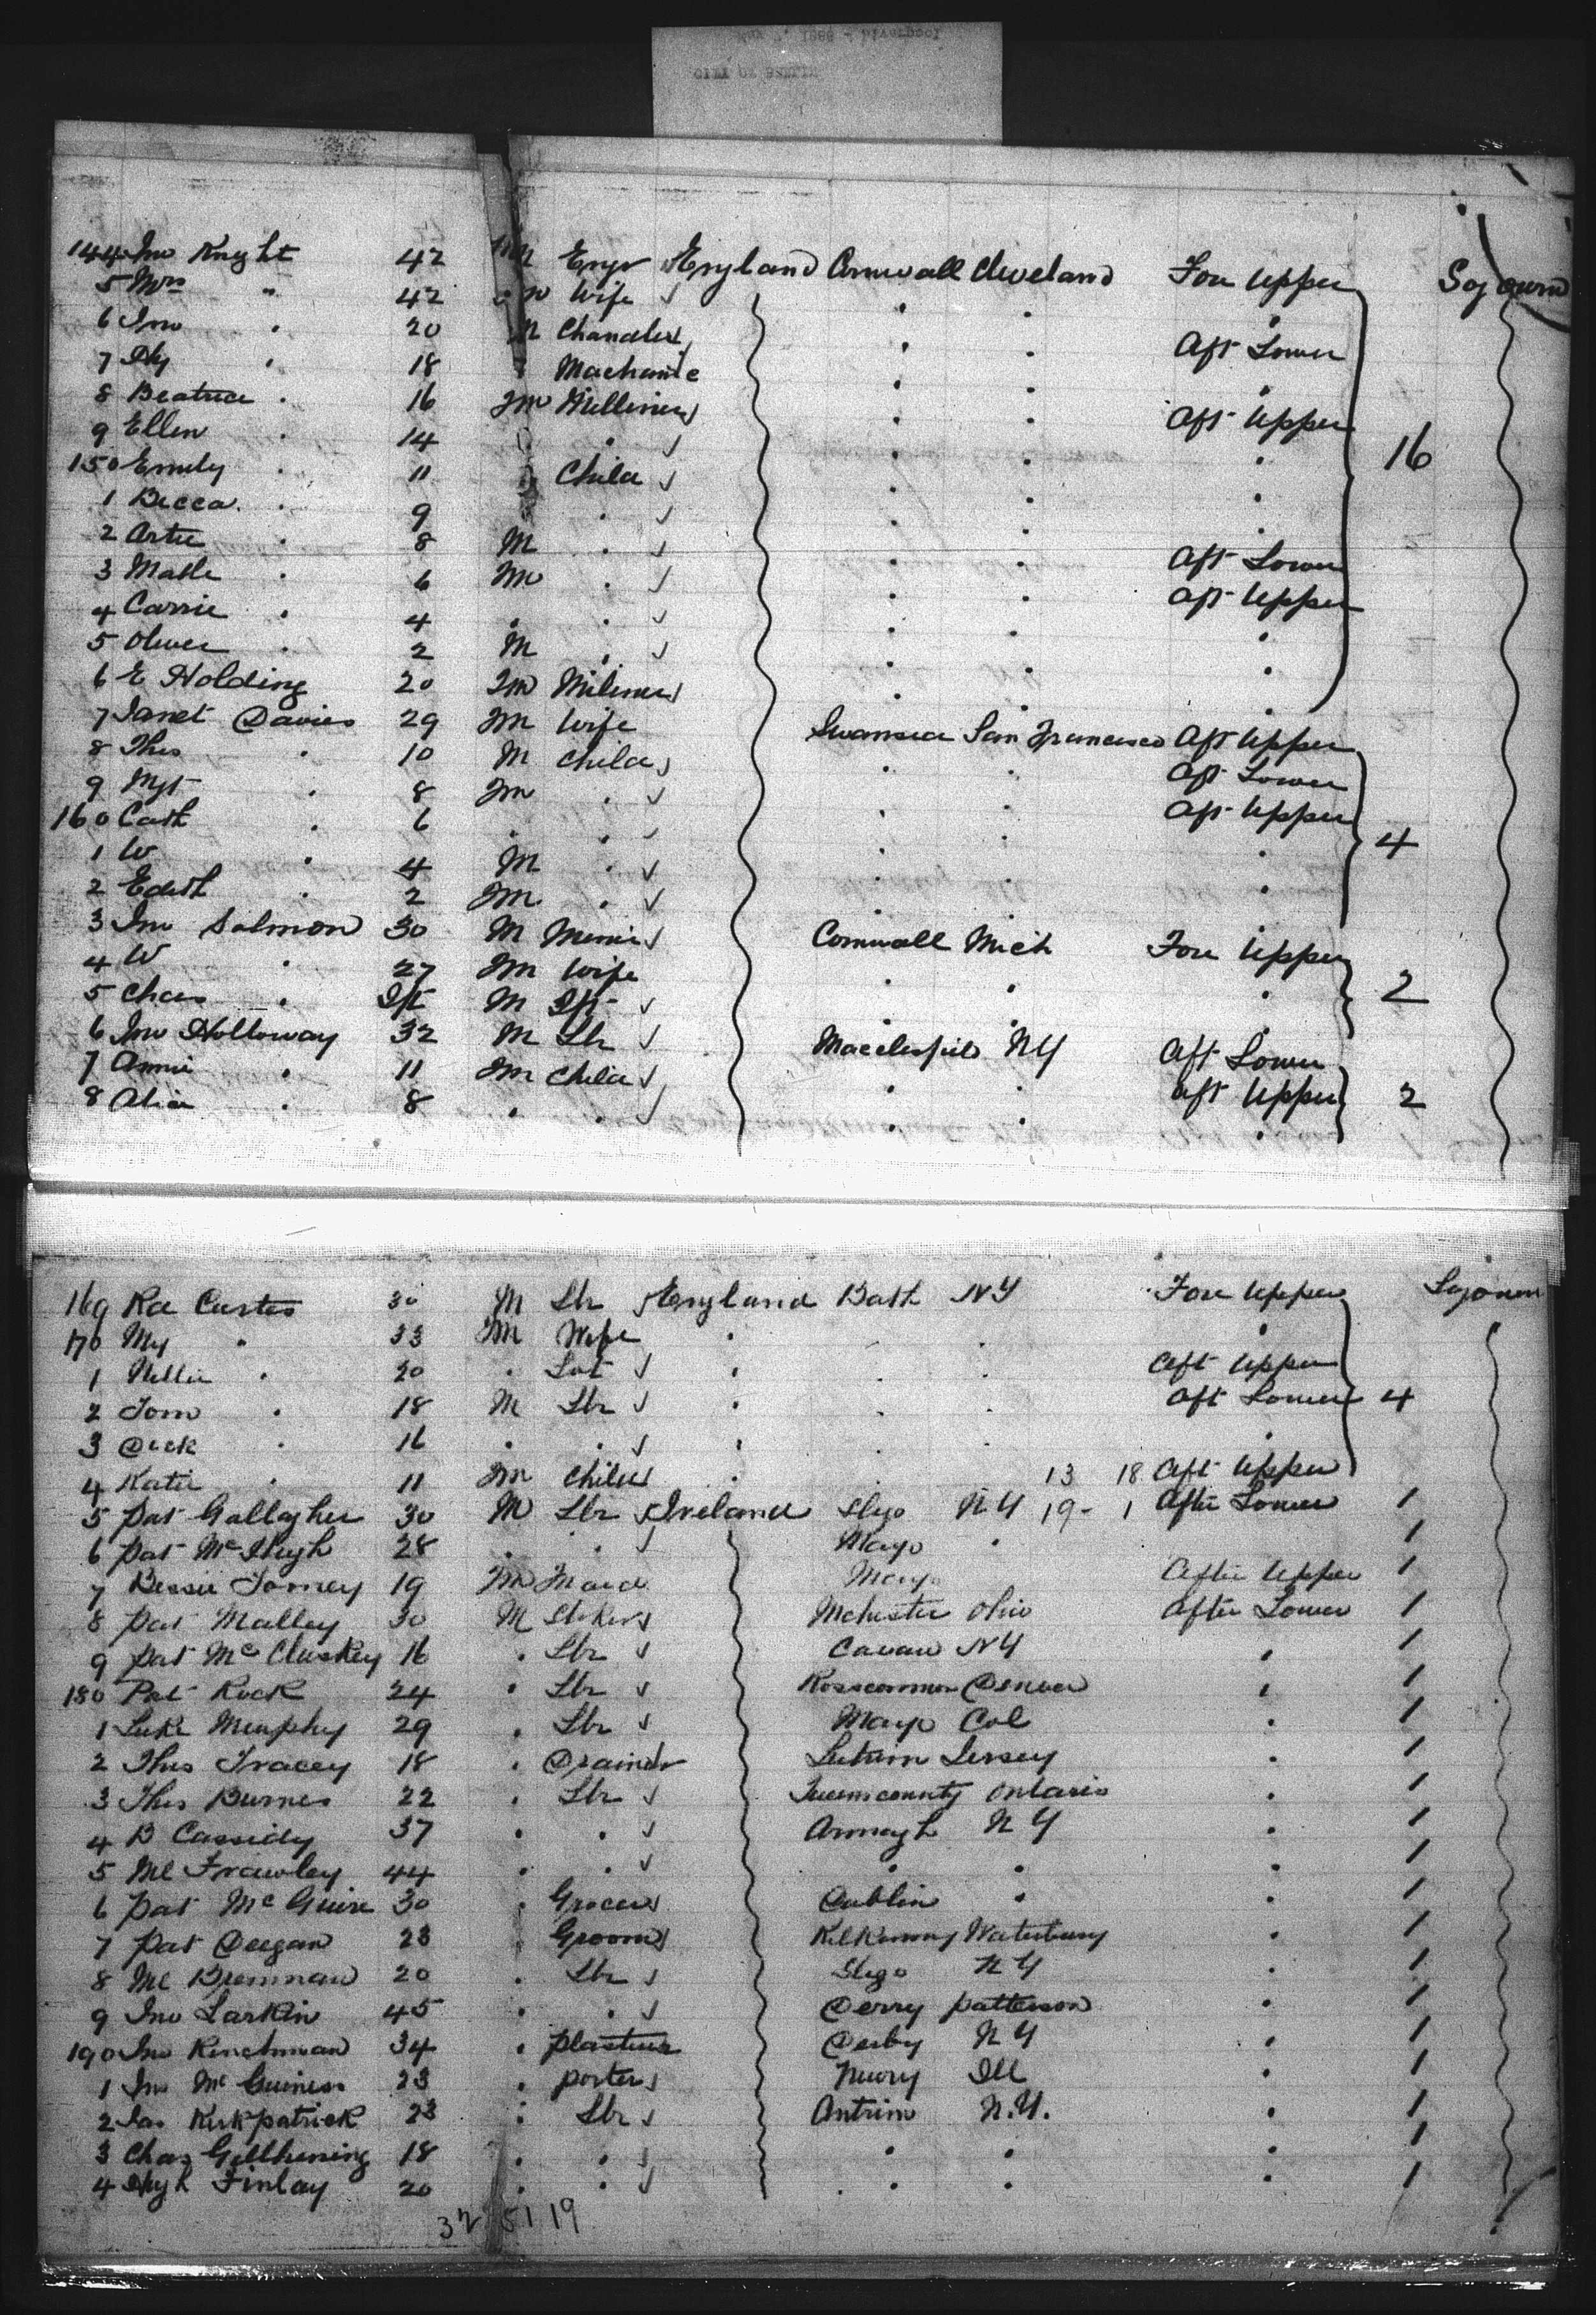 144 Jno Knight 42 M Engr England Cornwall Cleveland Fore Upper Sojourn
5 Mrs " 42 Wife
6 Jno " 20 M Chandler Aft Lower
7 Hy " 18 Machanic
8 Beatrice " 16 Fm Milliner Aft Upper
9 Ellen " 14 "
150 Emily " 11 Child 16
1 Becca " 9 "
2 Artie " 8 M " Aft Lower
3 Mable " 6 Fm " Aft Upper
4 Carrie " 4 " "
5 Oliver " 2 M "
6 E Holding 20 Fm Miliner
7 Janet Davies 29 Fm Wife Swansea San Francisco Aft Upper
8 Thos " 10 M Child " " Aft Lower
9 Mgt " 8 Fm " " " Aft Upper
160 Cath " 6 " " 4
1 W " 4 M "
2 Edith " 2 Fm "
3 Jno Salmon 30 M Miner Cornwall Mich Fore Upper
4 W " 27 Fm Wife " " " 2
5 Chas " Ift M Ift " " "
6 Jno Holloway 32 M Lbr Macclesfield NY Aft Lower
7 Annie " 11 Fm Child " " Aft Upper 2
8 Alice " 8 " " " " "
169 Rd Curtis 30 M Lbr England Bath NY Fore Upper Sojourn
170 My " 33 Fm Wife " " "
1 Nellie " 20 " " " " Aft Upper
2 Tom " 18 M Lbr " " " Aft Lower 4
3 Dick " 16 " " " " " "
4 Katie " 11 Fm Child " " 13 18 Aft Upper
5 Pat Gallagher 30 M Lbr Ireland Sligo NY 19 - 1 After Lower 1
6 Pat McHugh 28 " " Mayo " 1
7 Bessie Tomey 19 Fm Maid Mayo After Upper 1
8 Pat Malley 30 M Stoker Mchester Ohio After Lower 1
9 Pat McCluskey 16 " Lbr Cavan NY " 1
180 Pat Rock 24 " Lbr Roscommon Denver " 1
1 Luke Murphy 29 " Lbr Mayo Col " 1
2 Thos Tracey 18 " Drainer Leitrim Jersey " 1
3 Thos Burnes 22 " Lbr Queenscounty Ontario " 1
4 B Cassidy 37 " " Armagh NY " 1
5 Ml Frawley 44 " " " " " 1
6 Pat McGuire 30 " Grocer Dublin " " 1
7 Pat Deegan 23 " Groom Kilkenny Waterbury " 1
8 Ml Brennan 20 " Lbr Sligo NY " 1
9 Jno Larkin 45 " " Derry Patterson " 1
190 Jno Rinchman 34 " Plasterer Derby NY " 1
1 Jno McGuiness 23 " Porter Newry Ill " 1
2 Jas Kirkpatrick 23 " Lbr Antrim N.Y. " 1
3 Chas Gillhening 18 " " " " " 1
4 Hugh Finlay 20 " " " " " 1
32 51 19